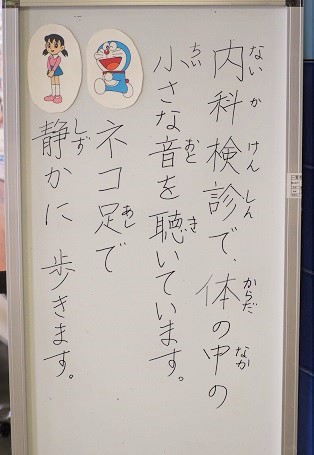 内科検診で、体の中の
小さな音を聴いています。
ネコ足で
静かに 歩きます。